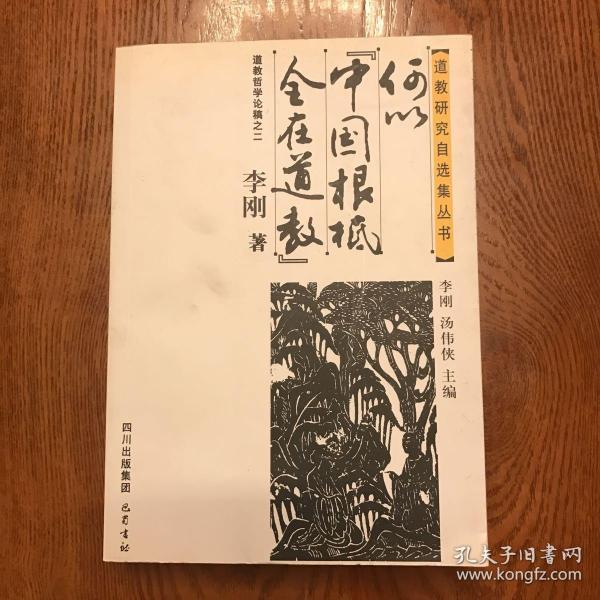 道教研究自选集丛书
何以
『中国根柢
全在道教』
道教哲学论稿之二
李刚 著
李刚 汤伟侠 主编
四川出版集团
巴蜀书社
孔夫子旧书网
www.kongfz.com